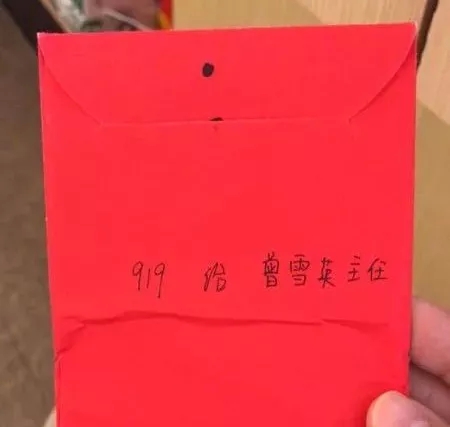 919 給 曾雪英主任